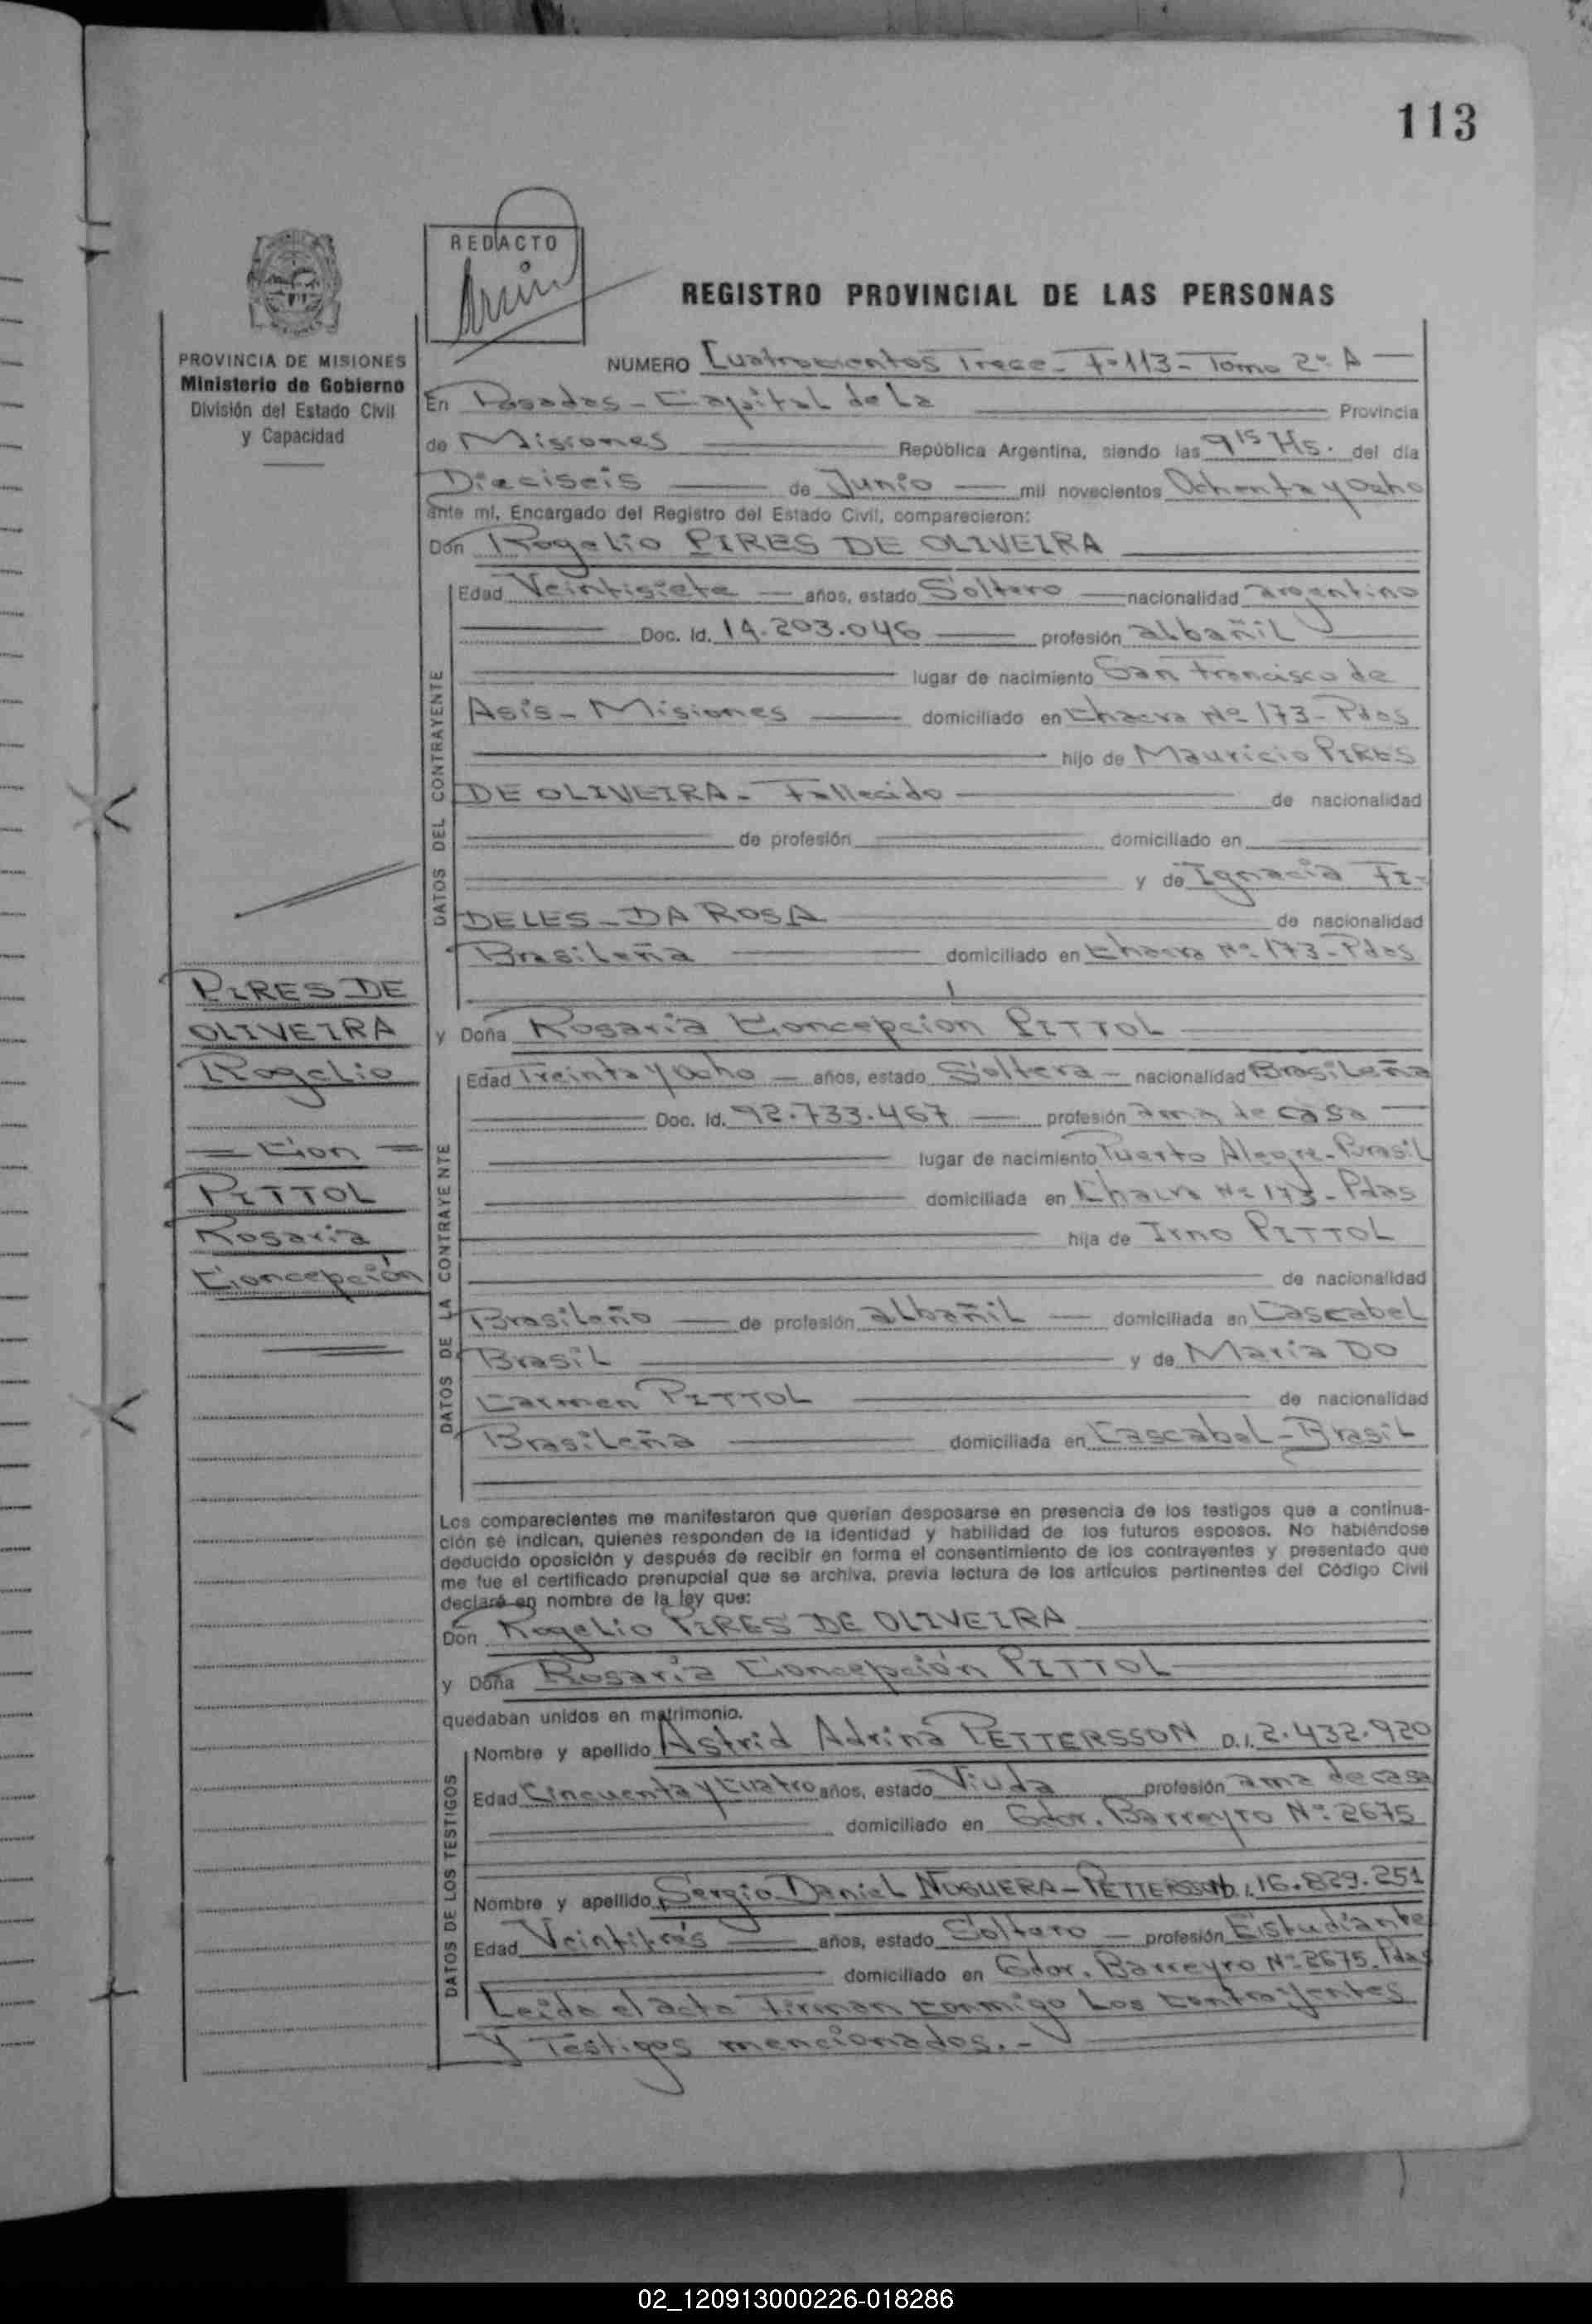 113
REDACTO
REGISTRO PROVINCIAL DE LAS PERSONAS
PROVINCIA DE MISIONES
Ministerio de Gobierno
División del Estado Civil
y Capacidad
NUMERO Cuatrocientos Trece - F=113 - Tomo 2º A
En Posadas - Capital de La Provincia
de Misiones República Argentina, siendo las 9 15 Hs. del día
Dieciseis de Junio mil novecientos Ochenta y ocho
ante mí, Encargado del Registro del Estado Civil, comparecieron:
Don Rogelio PIRES DE OLIVEIRA
DATOS DEL CONTRAYENTE
Edad Veintisiete años, estado Soltero nacionalidad argentino
Doc. Id. 14.203.046 profesión albañil
lugar de nacimiento San Francisco de
Asis - Misiones domiciliado en Chacra Nº 173 - Pdas
hijo de Mauricio PIRES
DE OLIVEIRA - Fallecido de nacionalidad
de profesión domiciliado en
y de Ignacia FI-
DELES - DA ROSA de nacionalidad
Brasileña domiciliado en Chacra Nº 173 - Pdas
PIRES DE
OLIVEIRA
Rogelio
= Con =
PITTOL
Rosaria
Concepción
y Doña Rosaria Concepcion PITTOL
DATOS DE LA CONTRAYENTE
Edad Treinta y ocho años, estado Soltera nacionalidad Brasileña
Doc. Id. 92.733.467 profesión ama de casa
lugar de nacimiento Puerto Alegre - Brasil
domiciliada en Chacra Nº 173 - Pdas
hija de Irno PITTOL
de nacionalidad
Brasileño de profesión albañil domiciliada en Cascabel
Brasil y de Maria DO
Carmen PITTOL de nacionalidad
Brasileña domiciliada en Cascabel - Brasil
Los comparecientes me manifestaron que querían desposarse en presencia de los testigos que a continua-
ción se indican, quienes responden de la identidad y habilidad de los futuros esposos. No habiéndose
deducido oposición y después de recibir en forma el consentimiento de los contrayentes y presentado que
me fue el certificado prenupcial que se archiva, previa lectura de los artículos pertinentes del Código Civil
declaré en nombre de la ley que:
Don Rogelio PIRES DE OLIVEIRA
y Doña Rosaria Concepción PITTOL
quedaban unidos en matrimonio.
DATOS DE LOS TESTIGOS
Nombre y apellido Astrid Adrina PETTERSSON D.I. 2.432.920
Edad Cincuenta y Cuatro años, estado Viuda profesión ama de casa
domiciliado en Gdor. Barreyro Nº 2675
Nombre y apellido Sergio Daniel NOGUERA - PETTERSSON 16.829.251
Edad Veintitrés años, estado Soltero profesión Estudiante
domiciliado en Gdor. Barreyro Nº 2675 Pdas
Leida el acta Firman conmigo Los contrayentes
Y Testigos mencionados.-
02_120913000226-018286